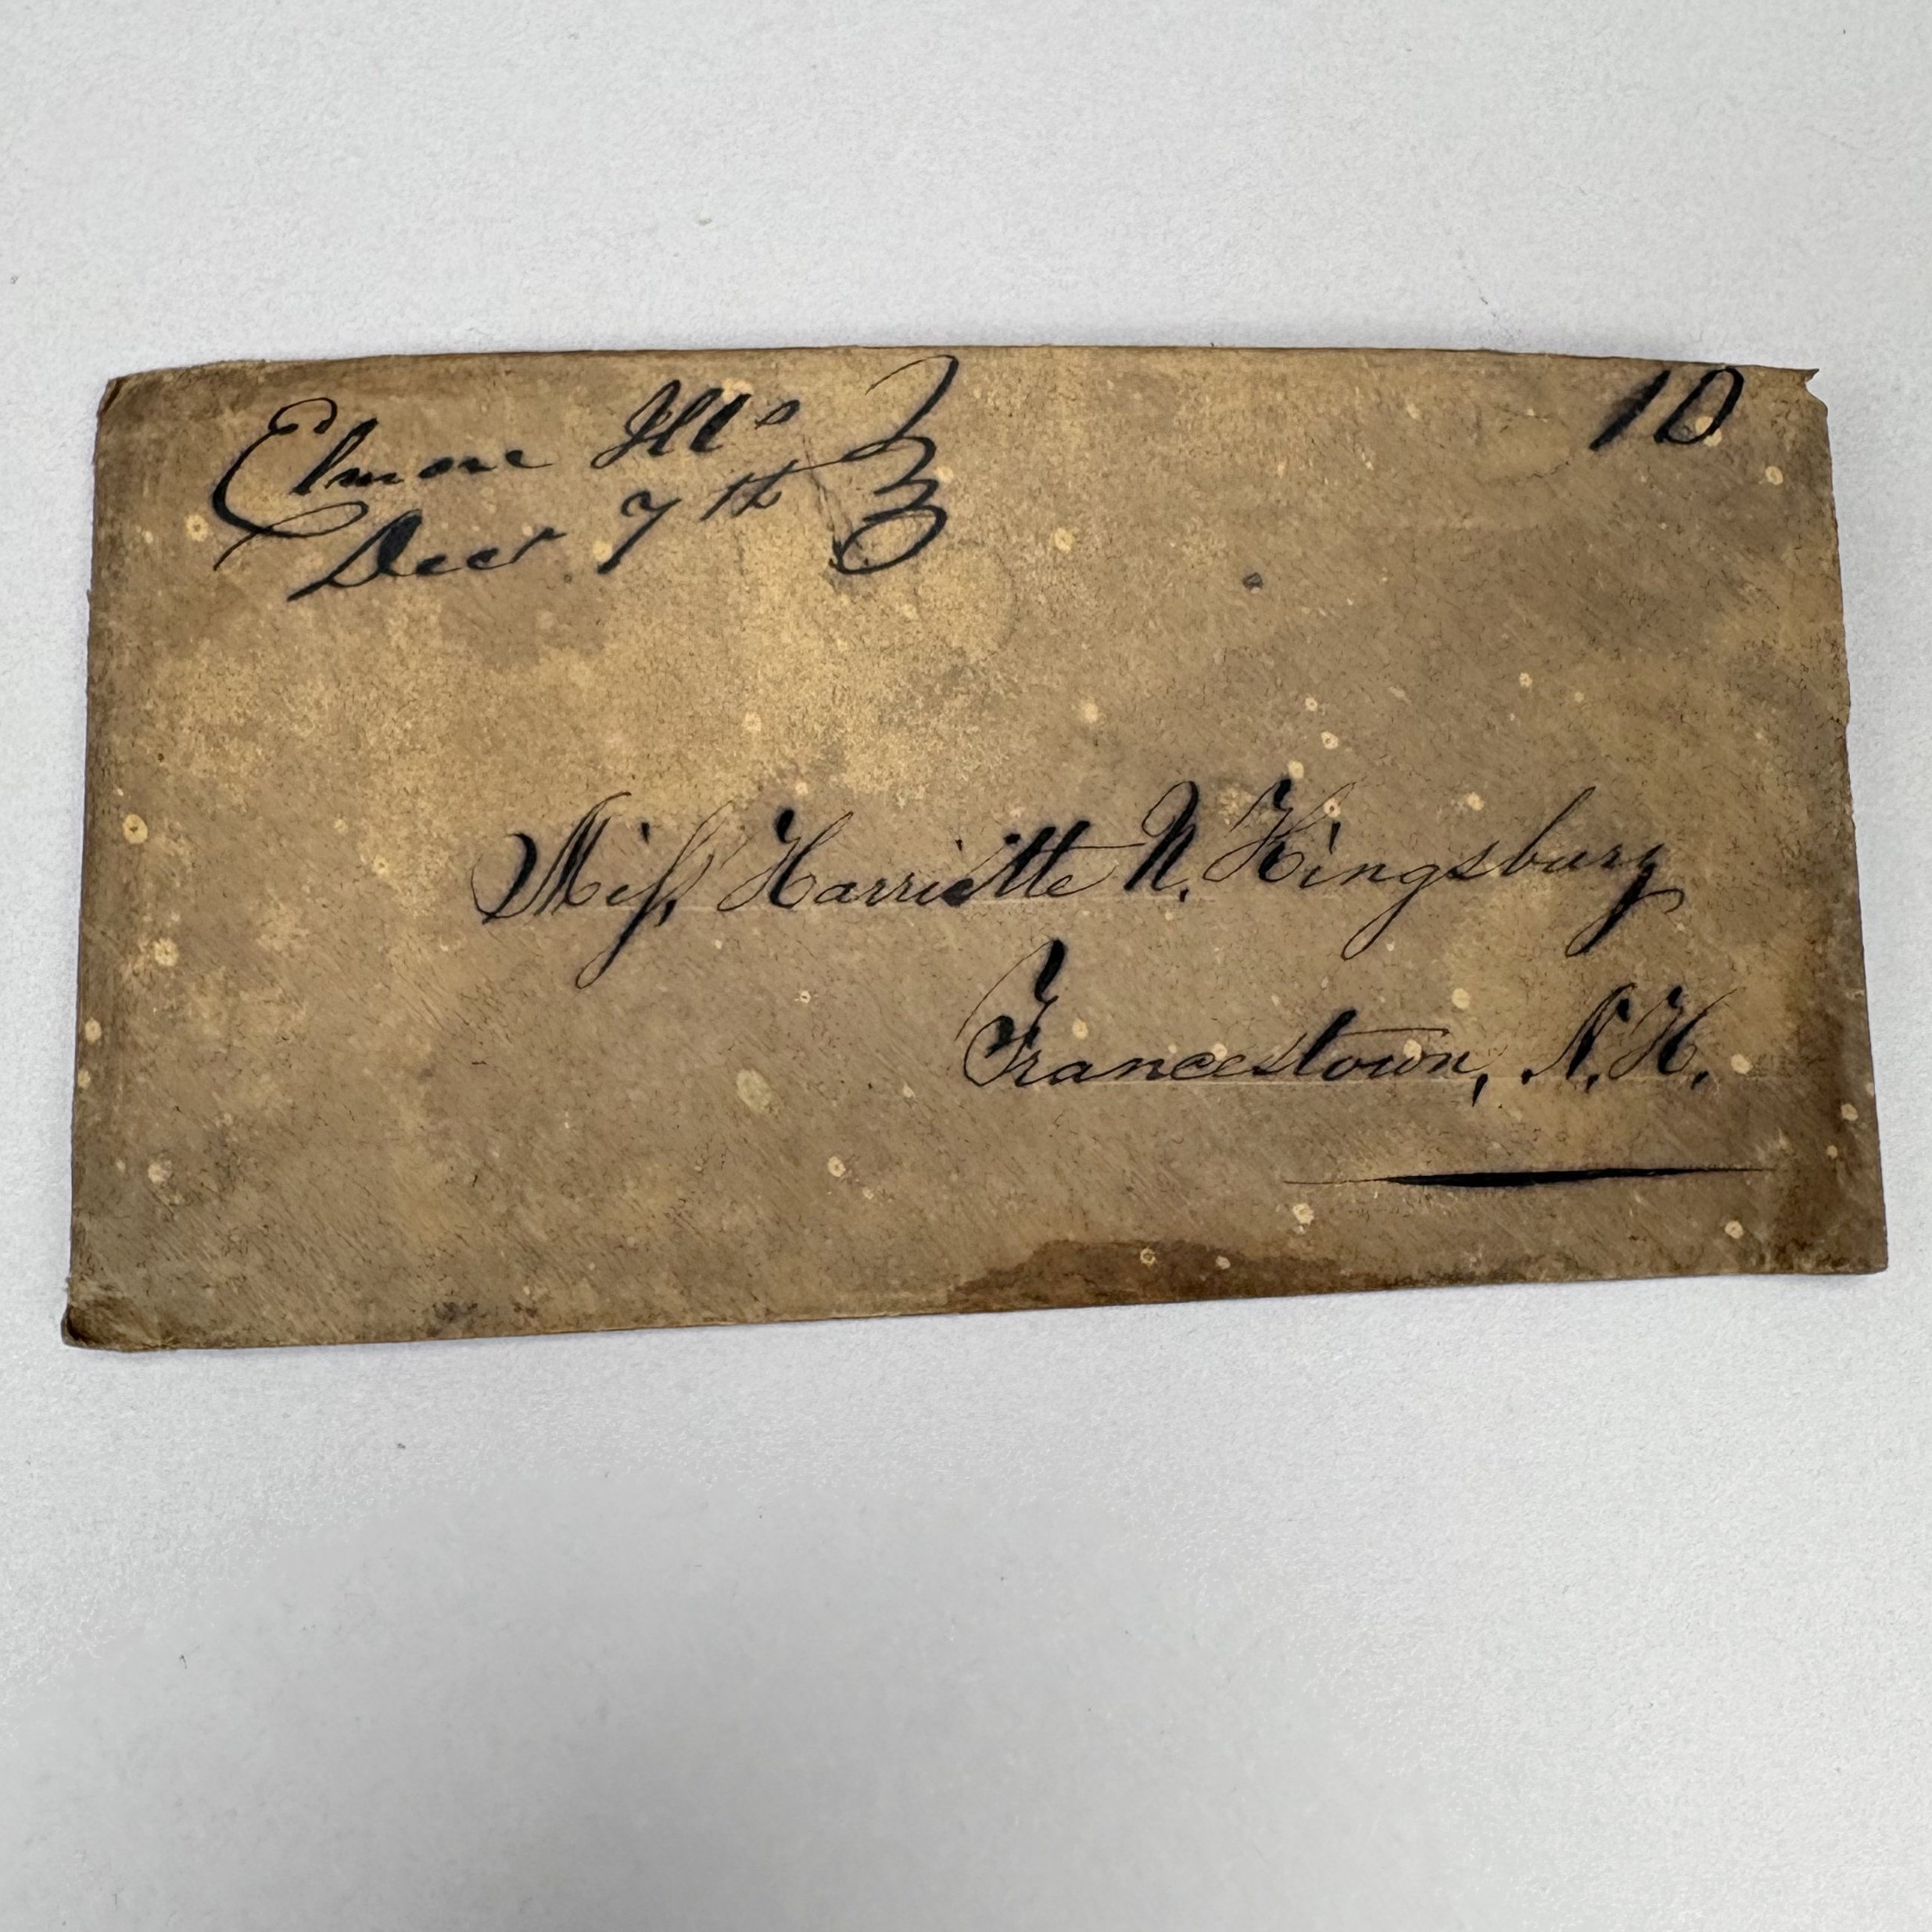 Elmore Ills
Decr 7th
10
Miſs, Harriette N. Kingsbury
Francestown, N.H.